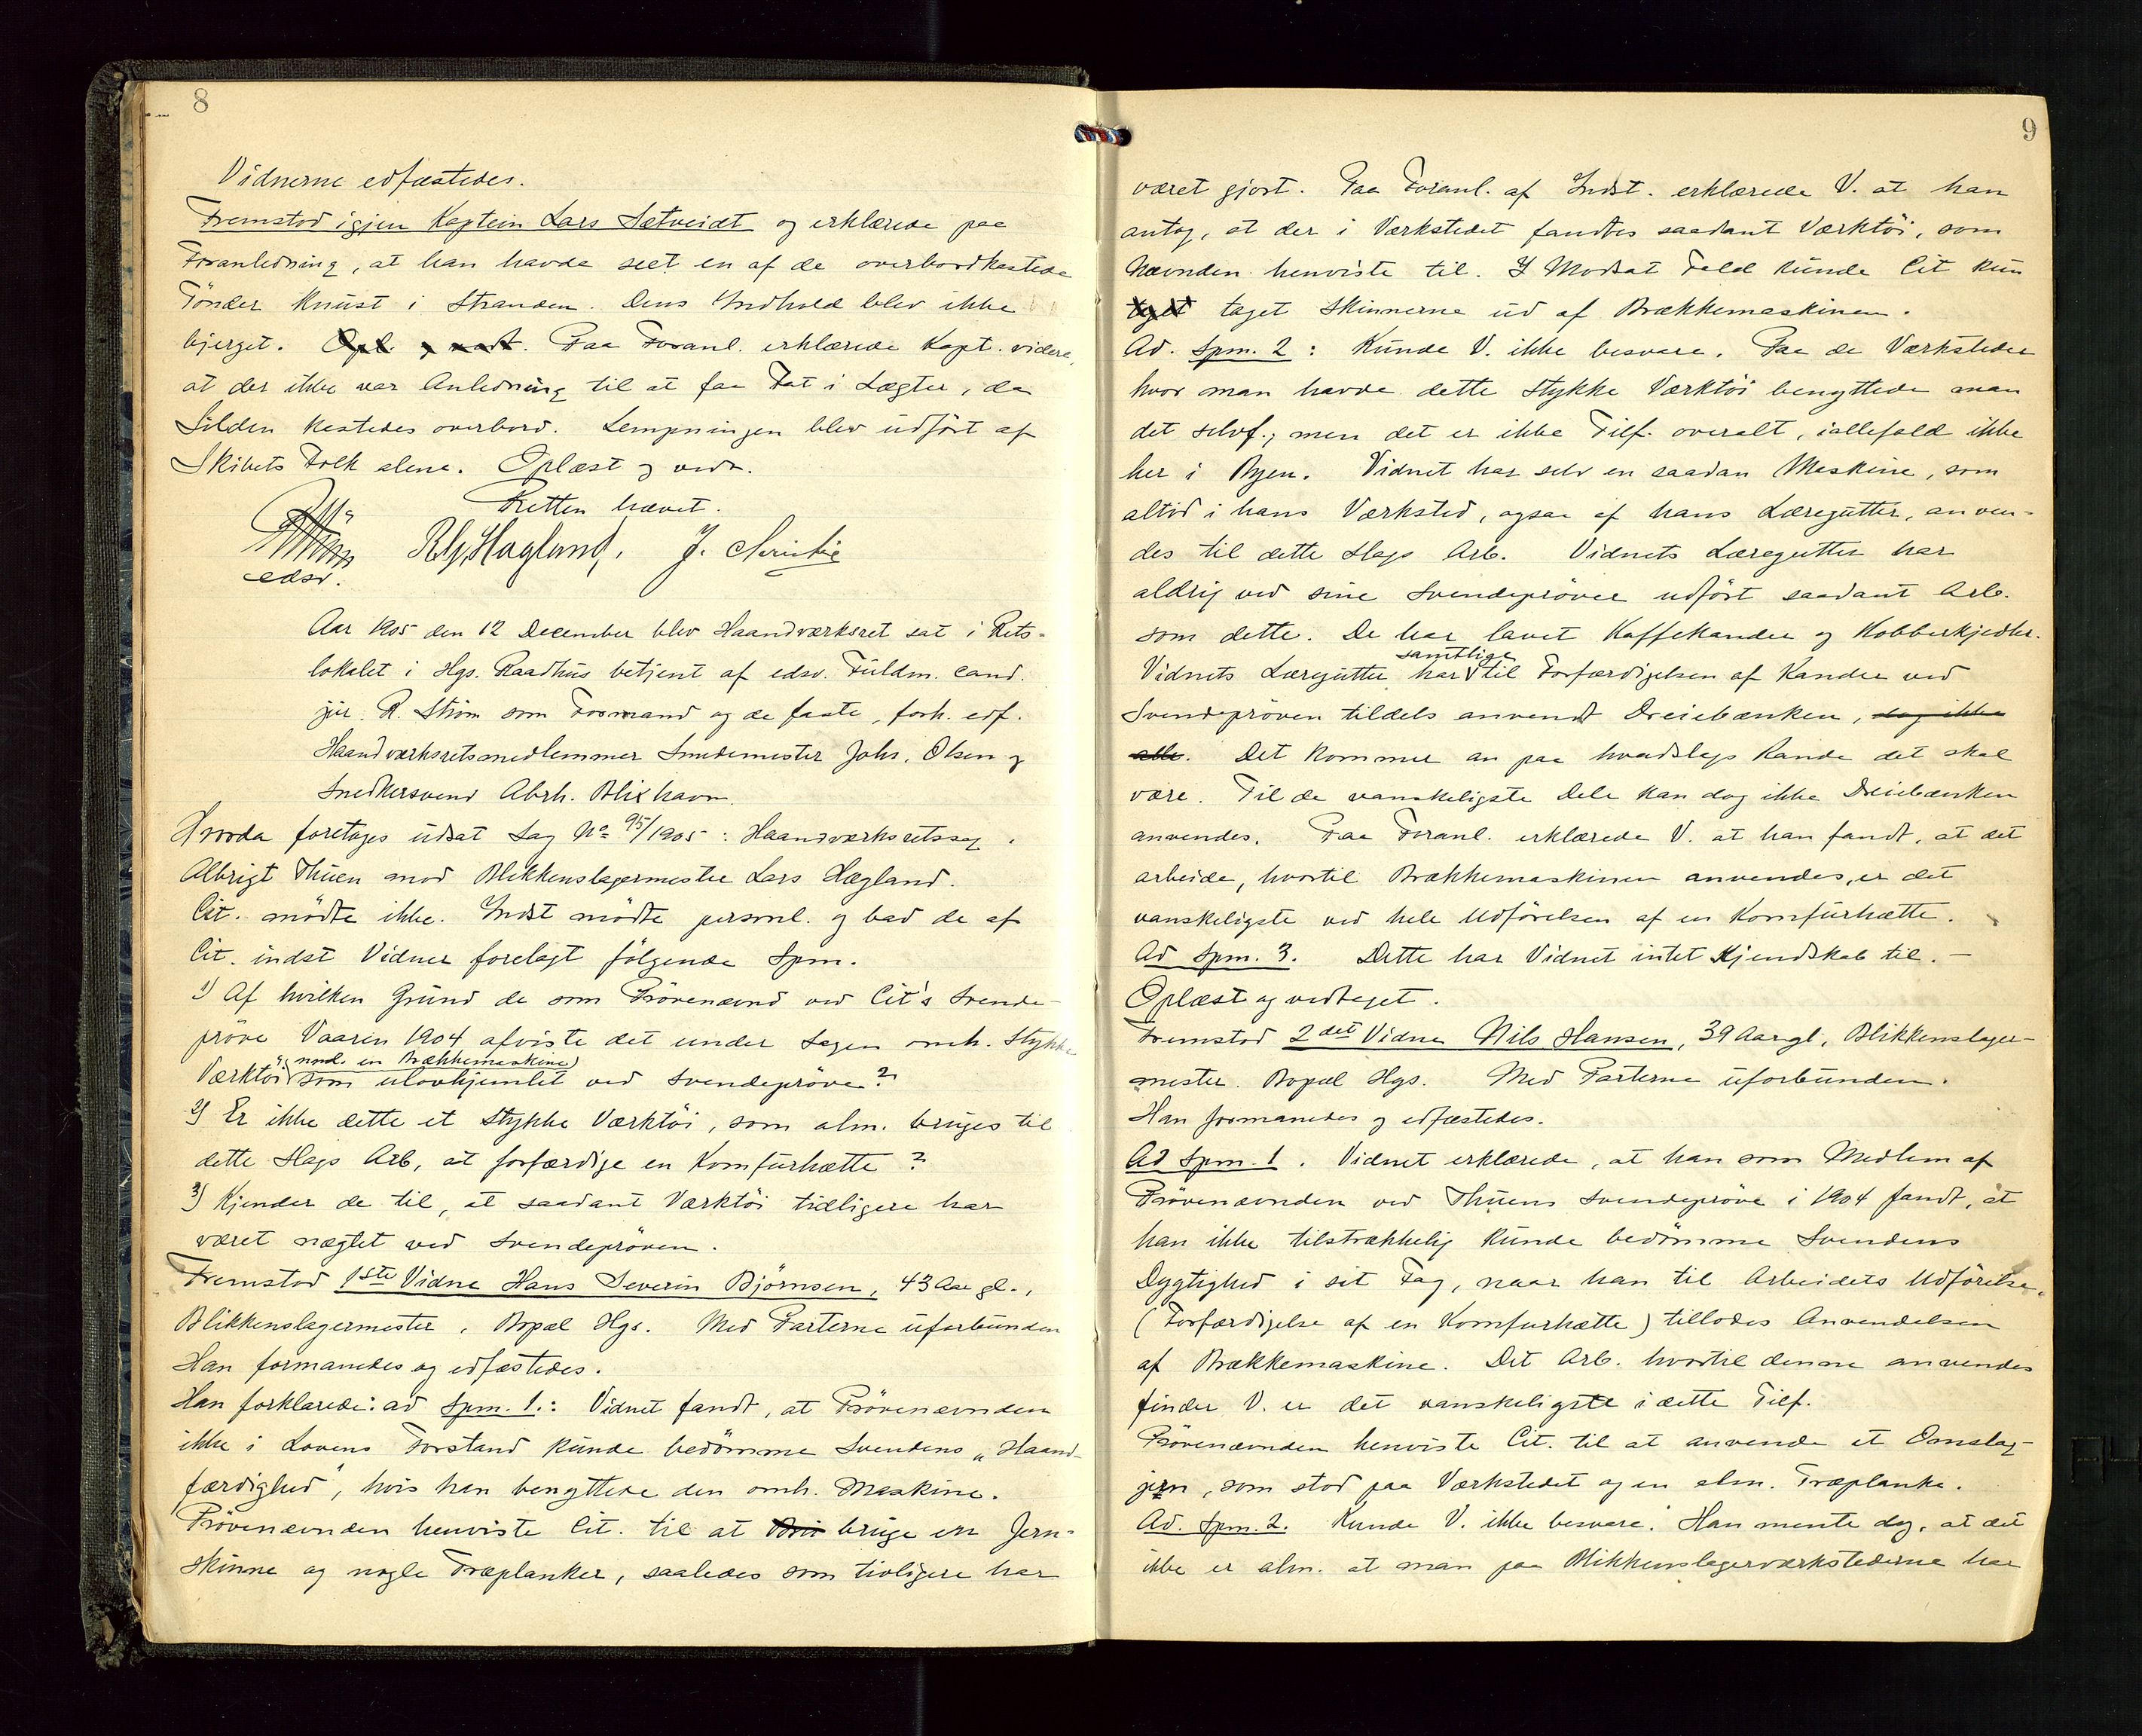 8
Vidnerne edfæstedes.
Fremstod igjen Kaptein Lars Sætveidt og erklærede paa
Foranledning, at han havde seet en af de overbordkastede
Tönder knust i Stranden. Dens Indhold blev ikke
bjerget. Paa Foranl. erklærede Kapt. videre,
at der ikke var Anledning til at faa Fat i Lægter, da
Silden kastedes overbord. Lempningen blev udfört af
Skibets Folk alene. Oplæst og vedt.
Retten hævet.
RStröm
edsv.
J. Christie
Aar 1905 den 12 December blev Haandværksret sat i Rets-
lokalet i Hgs. Raadhus betjent af edsv. Fuldm. cand.
jur. R. Ström som Formand og de faste, forh. edf.
Haandværksretsmedlemmer Smedemester Johs. Olsen og
Snedkersvend Abrh. Blikhavn.
Hvorda foretoges udsat Sag No 95/1905: Haandværksretssag.
Albrigt Thuen mod Blikkenslagermester Lars Hagland.
Cit. mödte ikke. Indst mödte personl. og bad de af
Cit. indst Vidner forelagt fölgende Spm.
1) Af hvilken Grund de som Prövenævnd ved Cit's Svende-
pröve Vaaren 1904 afviste det under Sagen omh. Stykke
Værktöi (nml. en Brækkemaskine) som ulovhjemlet ved Svendepröve?
2) Er ikke dette et Stykke Værktöi, som alm. bruges til
dette Slags Arb, at forfærdige en Komfurhætte?
3) Kjender de til, at saadant Værktöi tidligere har
været nægtet ved Svendepröven.
Fremstod 1ste Vidne Hans Severin Björnsen, 43 Aar gl.,
Blikkenslagermester. Bopæl Hgs. Med Parterne uforbunden
Han formanedes og edfæstedes.
Han forklarede: ad Spm. 1.: Vidnet fandt, at Prövenævnden
ikke i Lovens Forstand kunde bedömme Svendens „Haand-
færdighed", hvis han benyttede den omh. Maskine.
Prövenævnden henviste Cit. til at bruge en Jern-
skinne og nogle Træplanker, saaledes som tidligere har
9
været gjort. Paa Foranl. af Indst. erklærede V. at han
antog, at der i Værkstedet fandtes saadant Værktöi, som
Nævnden henviste til. I Modsat Fald kunde Cit kun
taget Skinnerne ud af Brækkemaskinen.
Ad. Spm. 2: Kunde V. ikke besvare. Paa de Værksteder
hvor man havde dette Stykke Værktöi benyttede man
det selvf., men det er ikke Tilf. overalt, iallefald ikke
her i Byen. Vidnet har selv en saadan Maskine, som
altid i hans Værksted, ogsaa af hans Læregutter, anven-
des til dette Slags Arb. Vidnets Læregutter har
aldrig ved sine Svendepröver udfört saadant Arb.
som dette. De har lavet Kaffekander og Kobberkjedler.
Vidnets Læregutter har samtlige til Forfærdigelsen af Kander ved
Svendepröven tildels anvendt Dreiebænken, dog ikke
alle. Det kommer an paa hvadslags Kande det skal
være. Til de vanskeligste Dele kan dog ikke Dreiebænken
anvendes. Paa Foranl. erklærede V. at han fandt, at det
arbeide, hvortil Brækkemaskinen anvendes, er det
vanskeligste ved hele Udförelsen af en Komfurhætte.
Ad Spm. 3. Dette har Vidnet intet Kjendskab til. —
Oplæst og vedtaget.
Fremstod 2det Vidne Nils Hansen, 39 Aar gl, Blikkenslager-
mester. Bopæl Hgs. Med Parterne uforbunden.
Han formanedes og edfæstedes.
Ad Spm. 1. Vidnet erklærede, at han som Medlem af
Prövenævnden ved Thuens Svendepröve i 1904 fandt, at
han ikke tilstrækkelig kunde bedömme Svendens
Dygtighed i sit Fag, naar han til Arbeidets Udförelse
(Forfærdigelse af en Komfurhætte) tillodes Anvendelsen
af Brækkemaskine. Det Arb. hvortil denne anvendes
finder V. er det vanskeligste i dette Tilf.
Prövenævnden henviste Cit. til at anvende et Omslag-
jern, som stod paa Værkstedet og en alm. Træplanke.
Ad. Spm. 2. Kunde V. ikke besvare. Han mente dog, at det
ikke er alm. at man paa Blikkenslagerværkstederne har